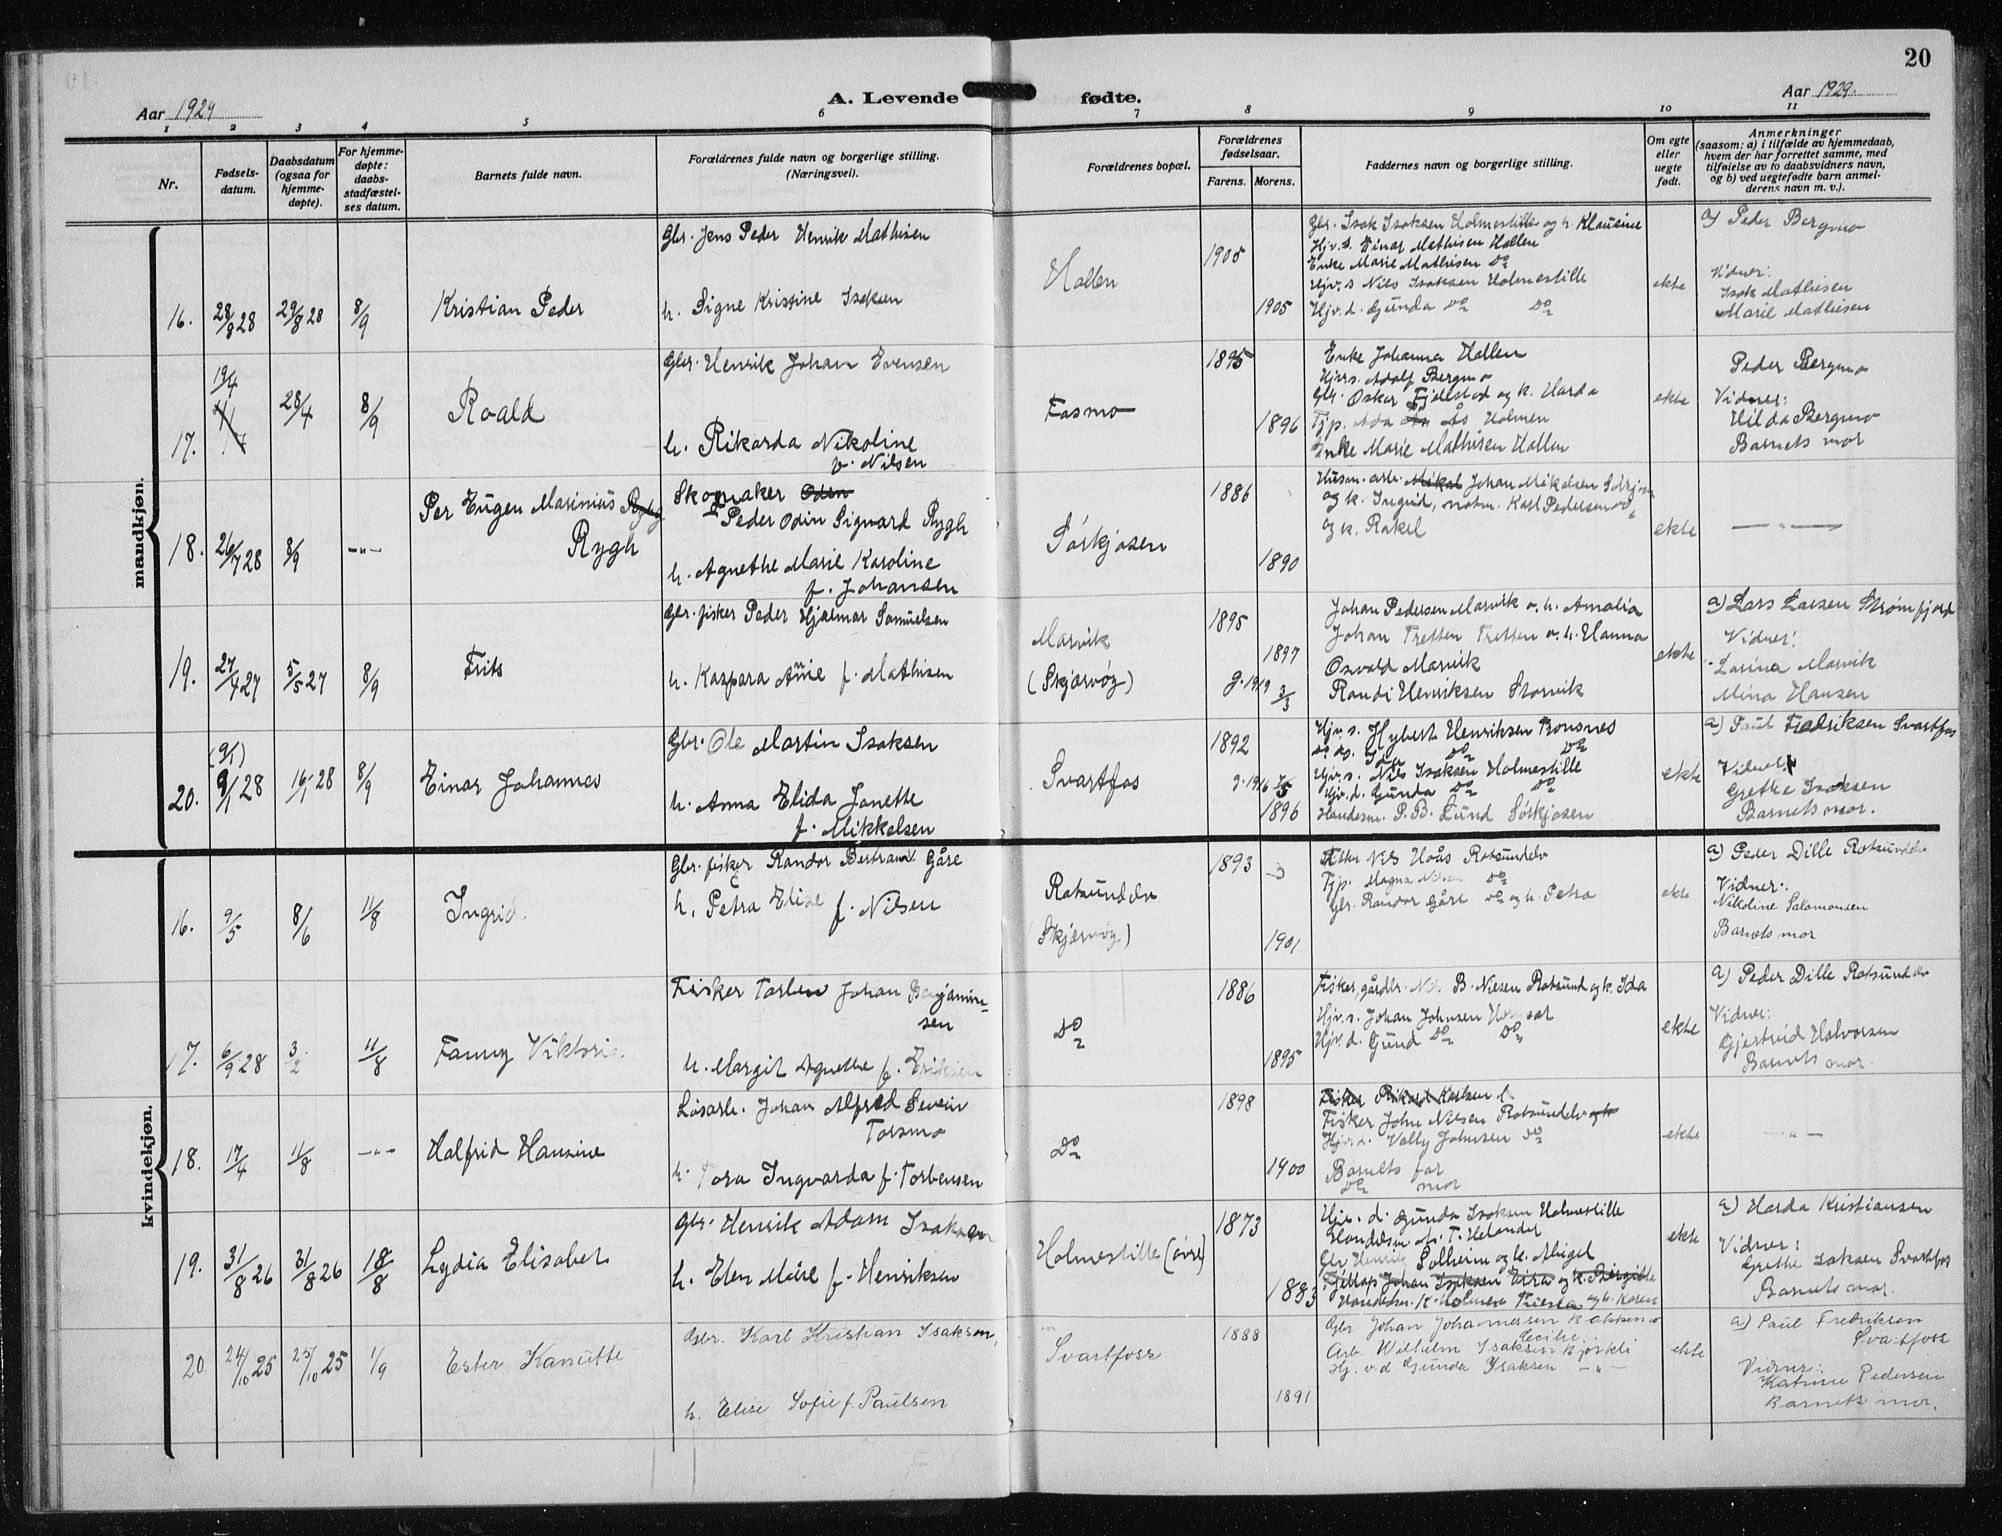 20
Aar 1929
A. Levende fødte.
Aar 1929.
1 2 3 4 5 6 7 8 9 10 11
Nr.
Fødsels-
datum.
Daabsdatum
(ogsaa for
hjemme-
døpte).
For hjemme-
døpte:
daabs-
stadfæstel-
ses datum.
Barnets fulde navn.
Forældrenes fulde navn og borgerlige stilling.
(Næringsvei).
Forældrenes bopæl.
Forældrenes
fødselsaar.
Farens. Morens.
Faddernes navn og borgerlige stilling.
Om egte
eller
uegte
født.
Anmerkninger
(saasom: a) i tilfælde av hjemmedaab,
hvem der har forrettet samme, med
tilføielse av to daabsvidners navn,
og b) ved uegtefødte barn anmel-
derens navn m. v.).
mandkjøn.
16.
28/8 28
29/8 28
8/9
Kristian Peder
Gbr. Jens Peder Henrik Mathisen
h. Signe Kristine Isaksen
Hallen
1905
1905
Gbr. Isak Isaksen Holmestille og h. Klausine
Hjv. s. Einar Mathisen Hallen
Enke Marie Mathisen do
Hjv. s Nils Isaksen Holmestille
Hjv. d. Gunda do do
ekte
a) Peder Bergmo
Vidner:
Isak Mathisen
Marie Mathisen
17.
19/4
28/4
8/9
Roald
Gbr. Henrik Johan Evensen
h. Rikarda Nikoline
v. Nilsen
Fosmo
1895
1896
Enke Johanna Hallen
Hjvs. Adolf Bergmo
Gbr. Oskar Fjellstad og k. Harda
Tjp. Ada Ås Holmen
Enke Marie Mathisen Hallen
ekte
Peder Bergmo
Vidner:
Hilda Bergmo
Barnets mor
18.
26/7 28
8/9
—"—
Per Eugen Marinius
Rygh
Skomaker Odin
Peder Odin Sigvard Rygh
h. Agnethe Marie Karoline
f. Johansen
Sørkjosen
1886
1890
Husm. arb. Mikal Johan Mikalsen Sørkjosen
og k. Ingrid, Karl Pedersen do
og k. Rakel
ekte
— " —
19.
27/4 27
5/5 27
8/9
Frits
Gbr. fisker Peder Hjalmar Samuelsen
h. Kaspara Anne f. Mathisen
Marvik
(Skjærvøy)
1895
1897
g. 1919 3/3
Johan Pedersen Marvik o. h. Amalia
Johan Tretten Tretten o. h. Hanna
Osvald Marvik
Randi Henriksen Storvik
ekte
a) Lars Larsen Strømfjord
Vidner:
Larina Marvik
Mina Hansen
20.
(9/1)
9/1 28
16/1 28
8/9
Einar Johannes
Gbr. Ole Martin Isaksen
h. Anna Elida Janette
f. Mikkelsen
Svartfos
1892
1896
Hjv. s. Hybert Henriksen Tronsnes
do do. Ida do do
Hjv. s. Nils Isaksen Holmestille
Hjv. d. Gunda do do
Handesm. P. B. Lund Sørkjosen
ekte
a) Paul Fredriksen Svartfos
Vidner:
Grethe Isaksen
Barnets mor.
kvindekjøn.
16.
9/5
8/6
11/8
Ingrid.
Gbr. fisker Randor Bertram Gåre
h. Petra Elise f. Nilsen
Rotsundelv
Skjærvøy)
1893
1901
Nils Hoås Rotsundelv
Tjp. Magna Nilsen do
Gbr. Randor Gåre do og h. Petra
ekte
a) Peder Dille Rotsundelv
Vidner:
Nikoline Salomonsen
Barnets mor
17.
6/9 28
3/2
11/8
Fanny Viktoria
Fisker Torben Johan Benjamin-
sen
h. Margit Agnethe f. Eriksen
do
1886
1895
Fisker, gårdbr. B. Nilsen Rotsund og k. Ida
Hjv. s. Johan Johnsen
Hjv. d. Gund do do
ekte
a) Peder Dille Rotsundelv
Vidner:
Gjertrud Halvorsen
Barnets mor.
18.
17/4
11/8
—"—
Halfrid Hansine
Løsarb. Johan Alfred Severin
Torsmo
h. Tora Ingvarda f. Torbensen
do
1898
1900
Fisker John Nilsen Rotsundelv
Hjv. d. Valley Johnsen do
Barnets far
do mor
ekte
" —
19.
31/8 26
31/8 26
18/8
Lydia Elisabet
Gbr. Henrik Adam Isaksen
h. Elen Marie f. Henriksen
Holmestille (øvre)
1873
1883
Hjv. d. Gunda Isaksen Holmestille
Handesm. M. T. Helander
Gbr Henrik Solheim og k. Abigel
Handelsm. K. Holmen og h. Karen
ekte
a) Harda Kristiansen
Vidner:
Grethe Isaksen Svartfos
Barnets mor.
20
24/10 25
25/10 25
1/9
Ester Kanutte
Gbr. Karl Kristian Isaksen,
h. Elise Sofie f. Paulsen
Svartfoss
1888
1891
Gbr Johan Johannessen Bakkemo
Cecilie.
Arb. Wilhelm Isaksen Bjørkli
Hj. v. d Gunda Isaksen — " —
ekte
a) Paul Fredriksen
Svartfoss
Vidner:
Katrine Pedersen
Barnets mor.